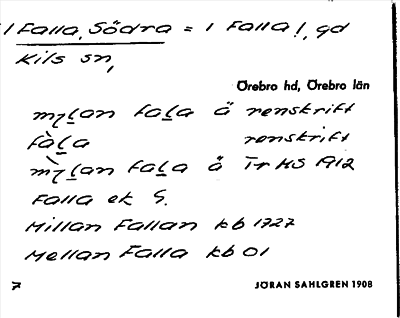 1 Falla, Södra = 1 Falla!, gd
Kils sn,
Örebro hd, Örebro län
fala å renskrift
fàla renskrift
fala å Tr HS 1912
Falla ek S.
Millan Fallan kb 1727
Mellan Falla kb 01
7 JÖRAN SAHLGREN 1908